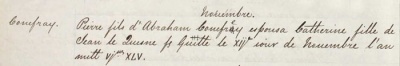 Nouembre.
Conefray. Pierre fils d'Abraham Conefray espousa Catherine fille de
Jean le Quesne fs Guille le XIJe jour de Nouembre l'an
mill vjcens XLV.